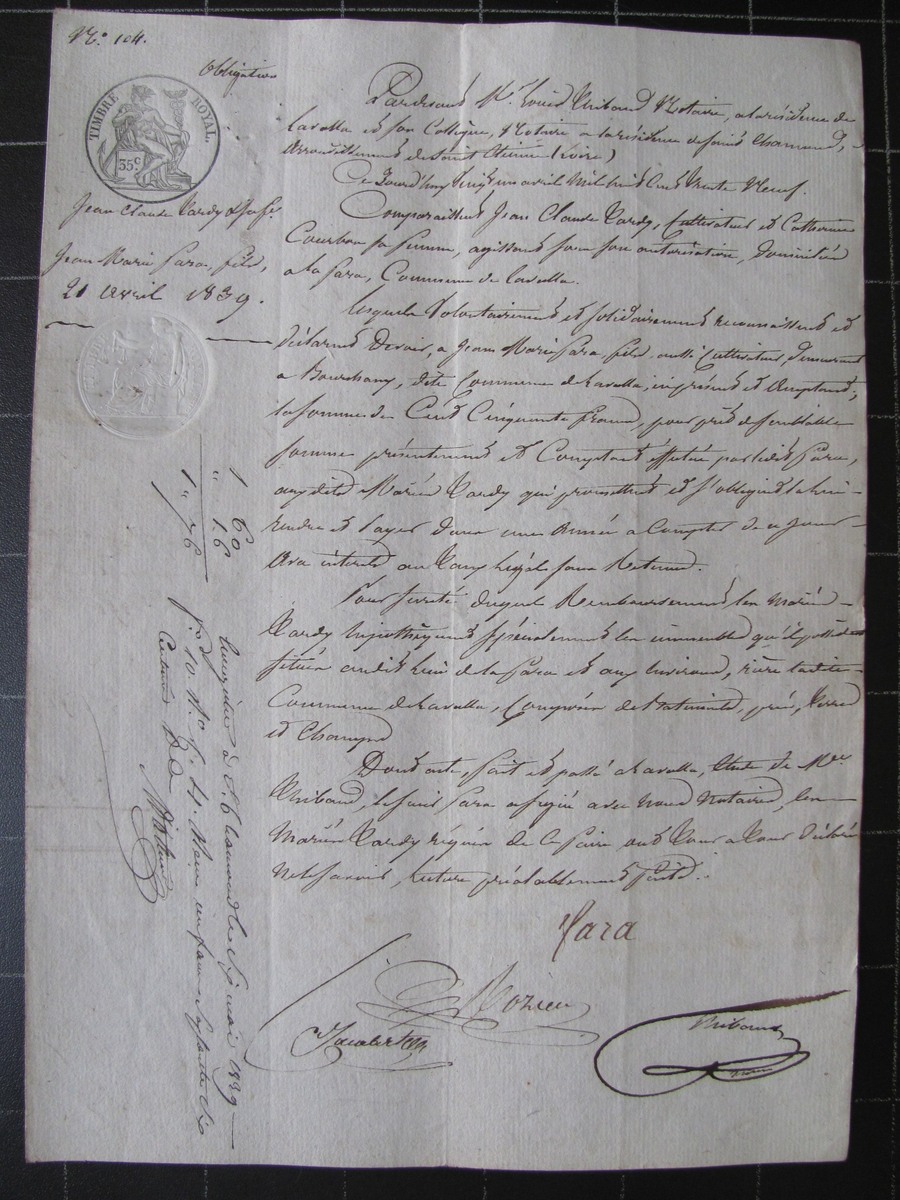 N.º 104.
Obligation
TIMBRE ROYAL
35 c
Jean Claude Tardy & sa fe
Jean Marie Fara, fils,
21 avril 1839.
Pardevant Me Louis Thibaud Notaire, a la résidence de
Lavalla et son Collègue, Notaire a la résidence de Saint Chamond,
Arrondissement de Saint Etienne (Loire)
Ce Jourd'huy vingt un avril Mil huit Cent trente Neuf.
Comparaissent Jean Claude Tardy, Cultivateur et Catherine
Courbon sa femme, agissant sous son autorisation, Domiciliés
a la Fara, Commune de Lavalla.
Lesquels Volontairement et solidairement reconnaissent et
déclarent devoir, a Jean Marie Fara fils aussi Cultivateur, demeurant
a Bourchany, dite Commune de Lavalla, ici présent et acceptant,
la somme de Cent Cinquante francs, pour prêt de semblable
somme présentement et Comptant effectué par ledit Fara,
auxdits Mariés Tardy qui promettent et s'obligent la lui
rendre et payer dans une Année a Compter de ce jour
Avec intérêts au taux légal sans Retenue.
Pour sureté duquel Remboursement les Mariés
Tardy hypothèquent spécialement les immeubles qu'ils possèdent
situés audit lieu de la Fara et aux Environs, rière ladite
Commune de Lavalla, Composés de Batiments, prés, Terres
et Champs
Dont acte, fait et passé a Lavalla, Etude de Me
Thibaud, Le Sieur Fara a signé avec Nous Notaires, les
Mariés Tardy requis de Ce faire ont tour a tour déclaré
Ne le savoir, lecture préalablement faite.
Fara
Mozieu
Thibaud
1 60
" 16
1 " 76
Enregistré à St Chamond le six mai 1839
fo 10 Ro c. 4. Reçu un franc soixante dix
centimes